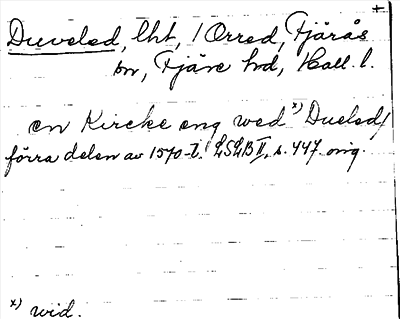 Duveled, lht, i Orred, Fjärås
sn, Fjäre hd, Hall. l.
en Kircke eng wed x) Dueled/
förra delen av 1570-t. LSLB II, s. 447. orig.
x) wid.